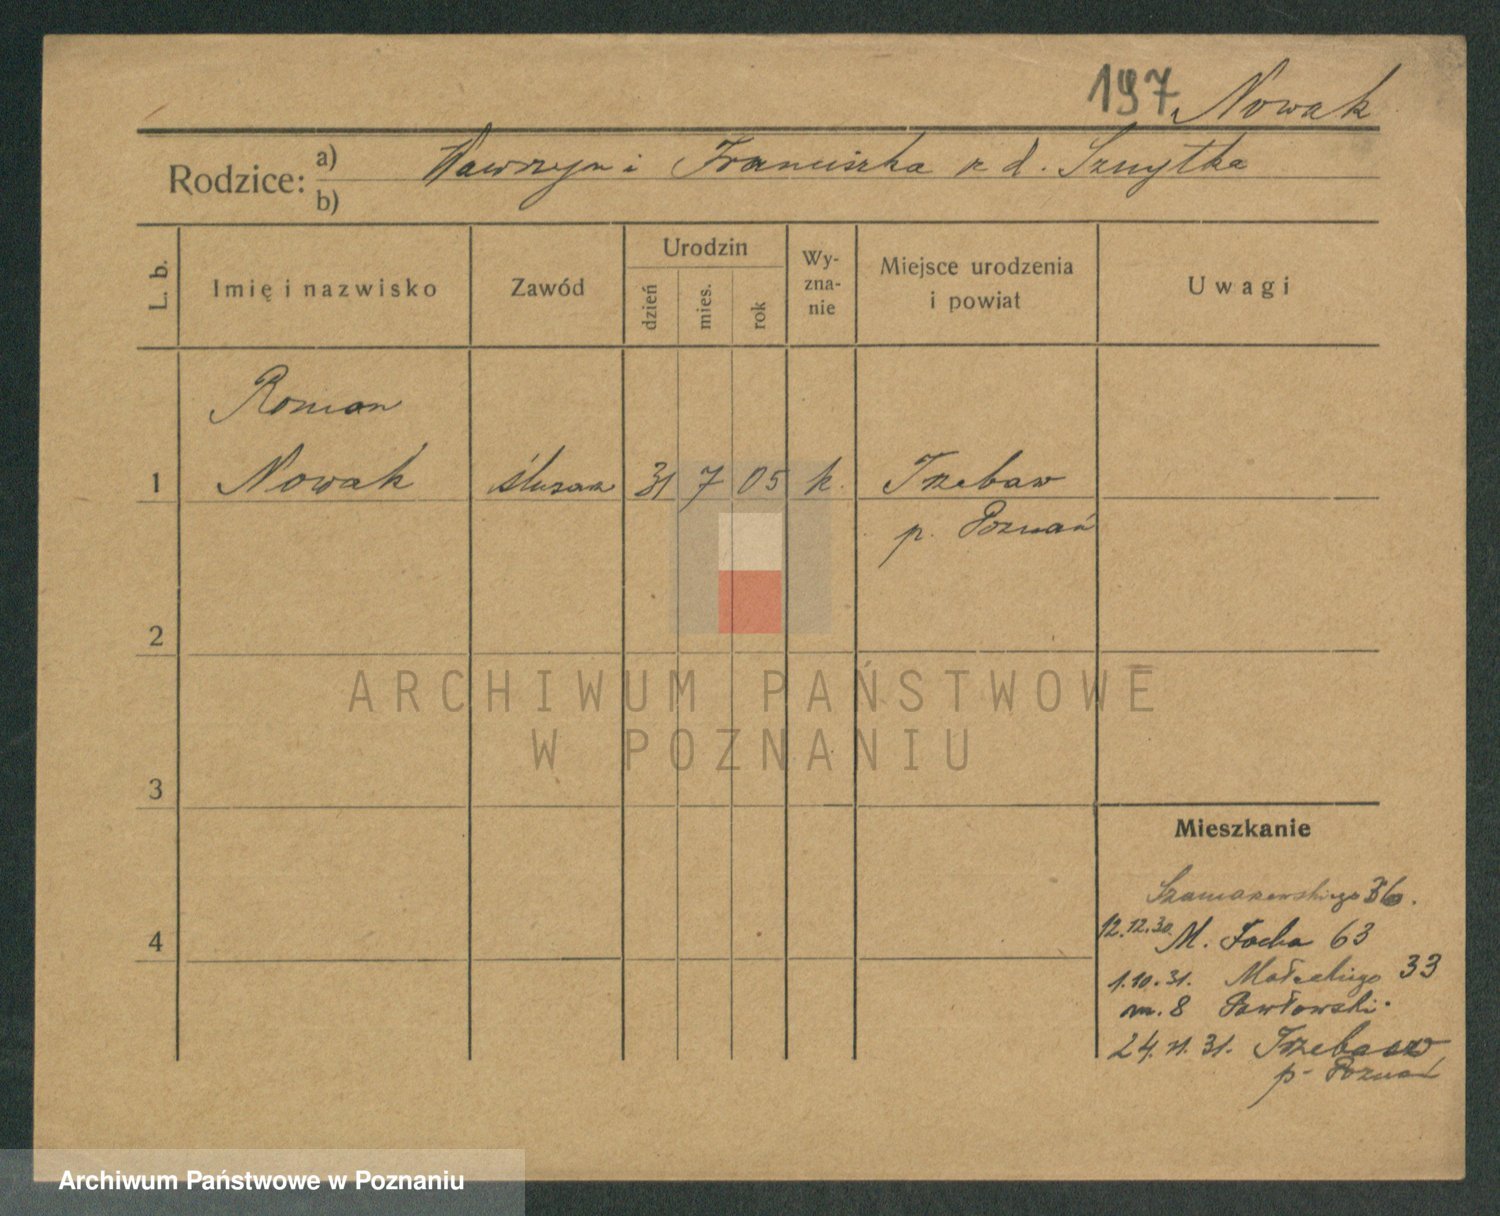 197 Nowak
Rodzice: a) Wawrzyn i Franciszka z d. Szmytka
b)
L. b.
Imię i nazwisko
Zawód
Urodzin
dzień
mies.
rok
Wy-
zna-
nie
Miejsce urodzenia
i powiat
Uwagi
Roman
1 Nowak ślusarz 31 7 05 k. Trzebaw
p. Poznań
2
3
4
ARCHIWUM PAŃSTWOWE
W POZNANIU
Mieszkanie
Szamarzewskiego 36.
12.12.30. M. Focha 63
1.10.31. Małeckiego 33
m. 8 Pawłowski.
24.11.31. Trzebaw
p. Poznań
Archiwum Państwowe w Poznaniu